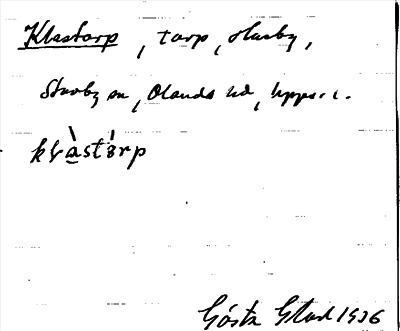 Klastorp, torp, Hasby,
Stavby sn, Olands hd, Upps. l.
klàstórp
Gösta Stad 1936